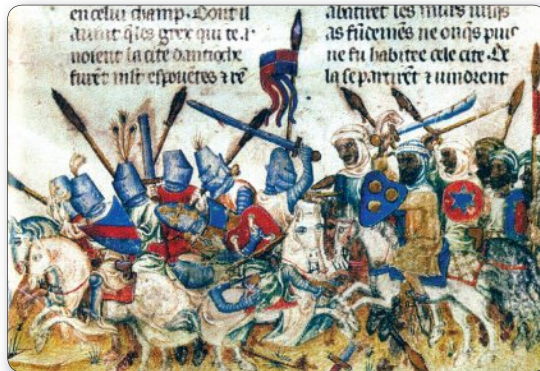 en celui champ. Dont il
auint q̃ les grex qui te.r
noient la cite dantioche
furẽt mlt espouẽtes ⁊ rẽ
abatirẽt les murs iusqs
as fũdemẽs ne onq̃s puis
ne fu habitee cele cite. De
la se partirẽt ⁊ uindrent